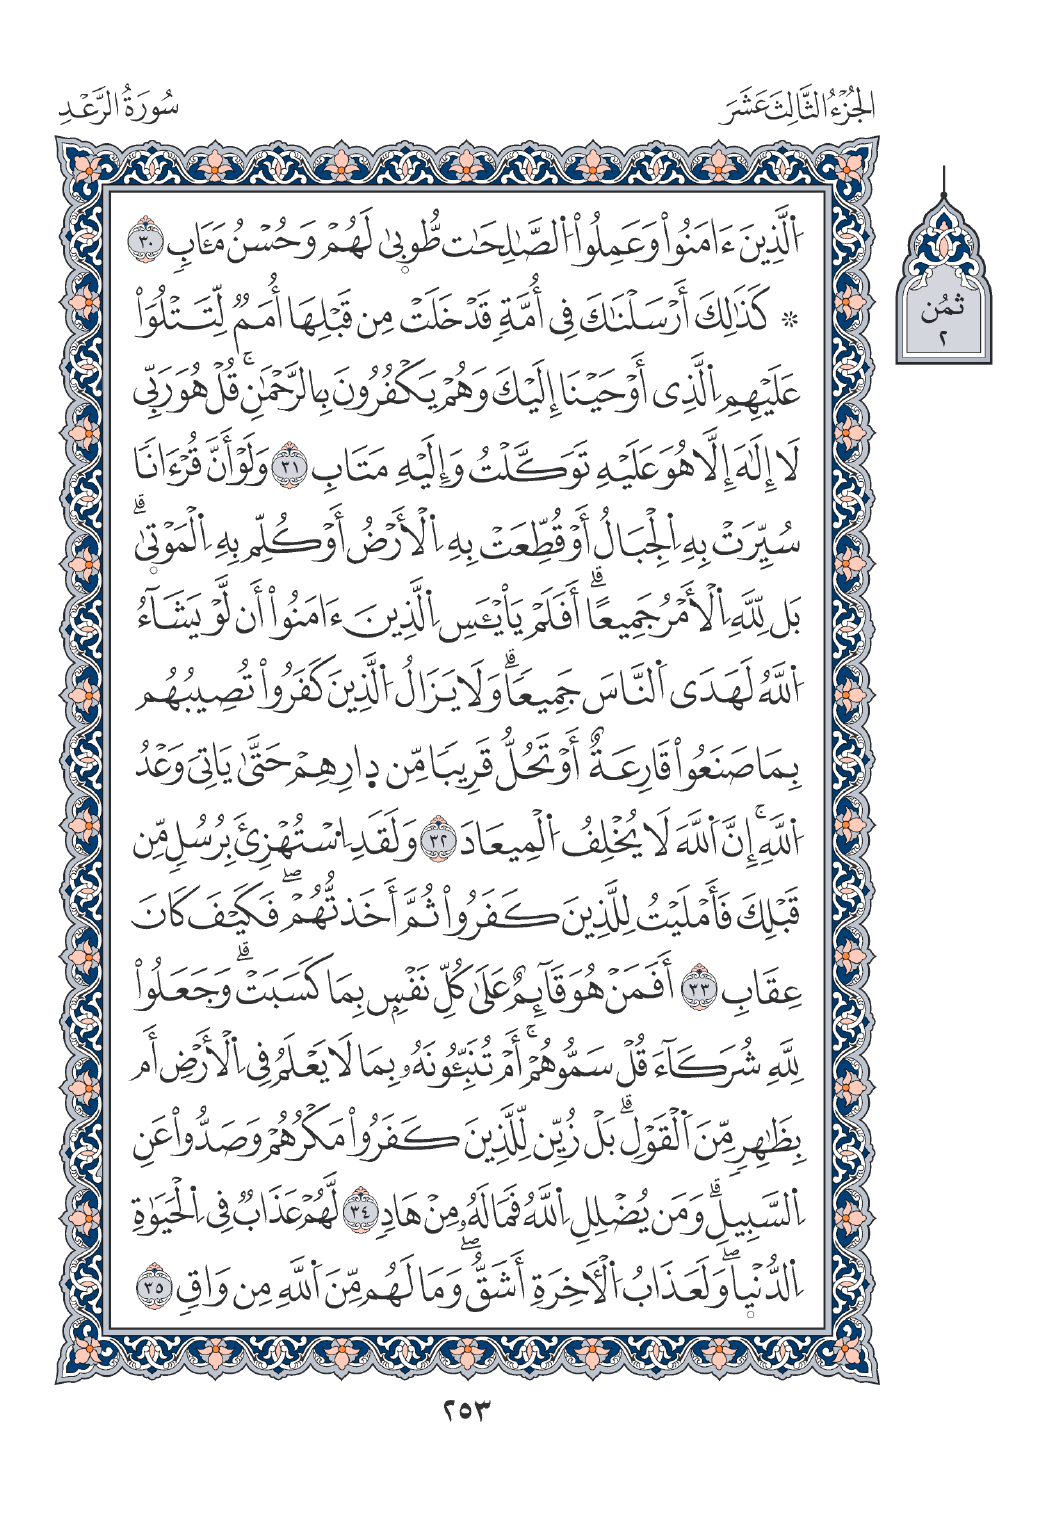 الجُزْءُ الثَّالِثَ عَشَرَ
سُورَةُ الرَّعْدِ
اَ۬لذِينَ ءَامَنُواْ وَعَمِلُواْ اُ۬لصَّٰلِحَٰتِ طُوب۪يٰ لَهُمْ وَحُسْنُ مَـَٔابٖۖ ٣٠
۞ كَذَٰلِكَ أَرْسَلْنَٰكَ فِے أُمَّةٖ قَدْ خَلَتْ مِن قَبْلِهَا أُمَمٞ لِّتَتْلُوَاْ
عَلَيْهِمِ اِ۬لذِے أَوْحَيْنَا إِلَيْكَ وَهُمْ يَكْفُرُونَ بِالرَّحْمَٰنِۚ قُلْ هُوَ رَبِّے
لَا إِلَٰهَ إِلَّا هُوَ عَلَيْهِ تَوَكَّلْتُ وَإِلَيْهِ مَتَابِ ٣١ وَلَوْ أَنَّ قُرْءَانٗا
سُيِّرَتْ بِهِ اِ۬لْجِبَالُ أَوْ قُطِّعَتْ بِهِ اِ۬لْأَرْضُ أَوْ كُلِّمَ بِهِ اِ۬لْمَوْت۪يٰۗ
بَل لِّلهِ اِ۬لْأَمْرُ جَمِيعًاۗ أَفَلَمْ يَاْيْـَٔسِ اِ۬لذِينَ ءَامَنُواْ أَن لَّوْ يَشَآءُ
اُ۬للَّهُ لَهَدَى اَ۬لنَّاسَ جَمِيعٗاۗ وَلَا يَزَالُ اُ۬لذِينَ كَفَرُواْ تُصِيبُهُم
بِمَا صَنَعُواْ قَارِعَةٌ أَوْ تَحُلُّ قَرِيبٗا مِّن دِارِهِمْ حَتَّىٰ يَاتِيَ وَعْدُ
اُ۬للَّهِۚ إِنَّ اَ۬للَّهَ لَا يُخْلِفُ اُ۬لْمِيعَادَ ٣٢ وَلَقَدِ اِ۟سْتُهْزِئَ بِرُسُلٖ مِّن
قَبْلِكَ فَأَمْلَيْتُ لِلَّذِينَ كَفَرُواْ ثُمَّ أَخَذتُّهُمْۖ فَكَيْفَ كَانَ
عِقَابِ ٣٣ أَفَمَنْ هُوَ قَآئِمٌ عَلَىٰ كُلِّ نَفْسِۢ بِمَا كَسَبَتْۗ وَجَعَلُواْ
لِلهِ شُرَكَآءَ قُلْ سَمُّوهُمْۚ أَمْ تُنَبِّـُٔونَهُۥ بِمَا لَا يَعْلَمُ فِے اِ۬لْأَرْضِ أَم
بِظَٰهِرٖ مِّنَ اَ۬لْقَوْلِۗ بَلْ زُيِّن لِّلَّذِينَ كَفَرُواْ مَكْرُهُمْ وَصَدُّواْ عَنِ
اِ۬لسَّبِيلِۗ وَمَن يُضْلِلِ اِ۬للَّهُ فَمَا لَهُۥ مِنْ هَادٖ ٣٤ لَّهُمْ عَذَابٞ فِے اِ۬لْحَيَوٰةِ
اِ۬لدُّنْي۪اۖ وَلَعَذَابُ اُ۬لْأٓخِرَةِ أَشَقُّۖ وَمَا لَهُم مِّنَ اَ۬للَّهِ مِن وَاقٖ ٣٥
ثُمُن
٢
٢٥٣